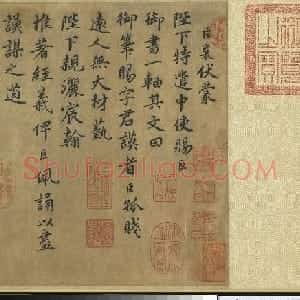 臣襄伏蒙
陛下特遣中使賜臣
御書一軸其文曰
御筆賜字君謨者臣孤賤
遠人無大材藝
陛下親灑宸翰
推著經義俾臣佩誦以盡
謨謀之道
Shufaziliao.com